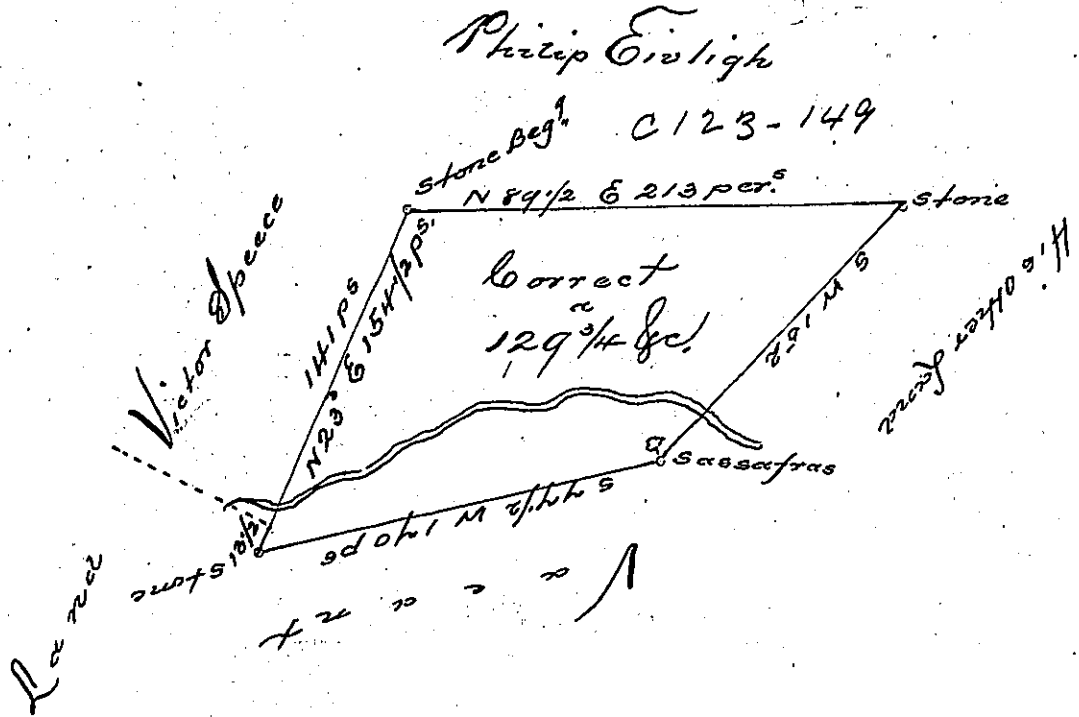 Philip Eivligh
C 123-149
Stone Begg.
N 89 1/2 E 213 per.s
Stone
Victor Speece
141 Ps
N 23° E 154 1/2 ps.
Correct
129 3/4 &c.
His other Land
Sassafras
S 77 1/2 W 170 ps
13 1/2
Stone
Vacant
Land